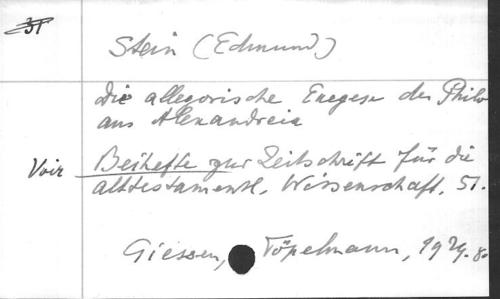 Stein (Edmund)
Die allegorische Exegese des Philo
aus Alexandreia
Voir Beihefte zur Zeitschrift für die
alttestamentl. Wissenschaft. 51.
Giessen, Töpelmann, 1929. 8º